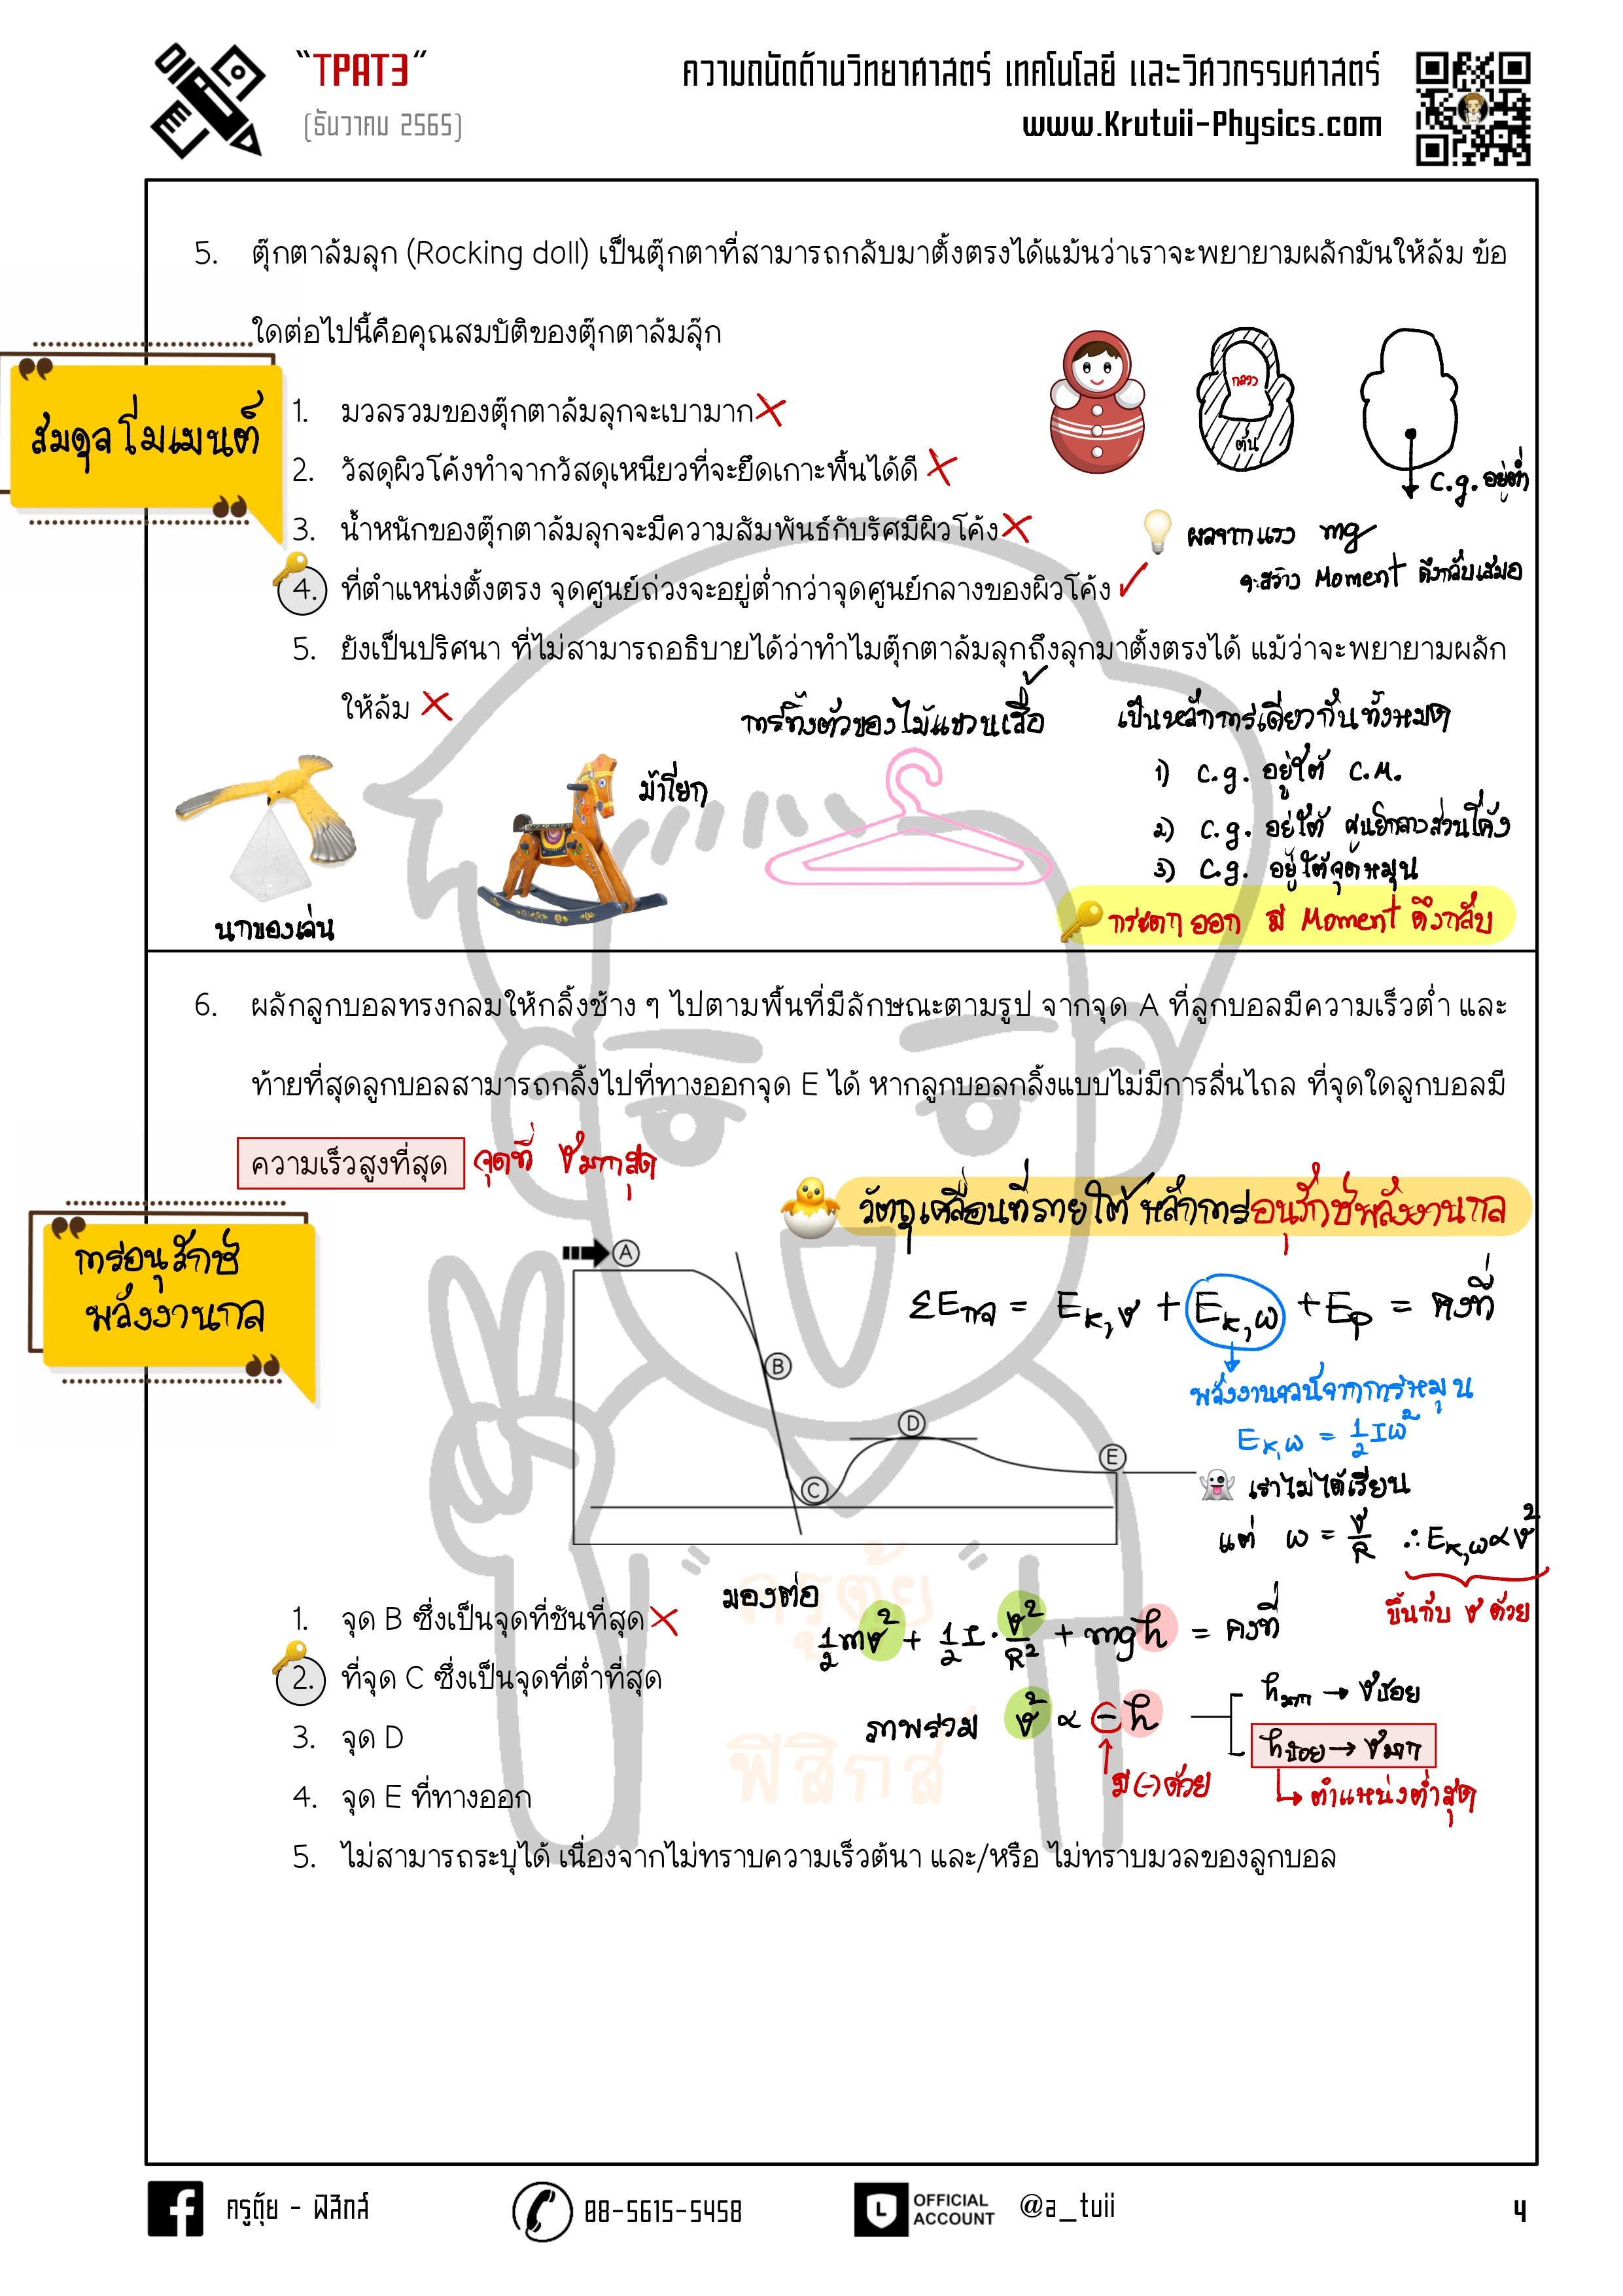 “TPAT3”
(ธันวาคม 2565)
ความถนัดด้านวิทยาศาสตร์ เทคโนโลยี และวิศวกรรมศาสตร์
www.Krutuii-Physics.com
5. ตุ๊กตาล้มลุก (Rocking doll) เป็นตุ๊กตาที่สามารถกลับมาตั้งตรงได้แม้นว่าเราจะพยายามผลักมันให้ล้ม ข้อ
ใดต่อไปนี้คือคุณสมบัติของตุ๊กตาล้มลุ๊ก
สมดุลโมเมนต์
1. มวลรวมของตุ๊กตาล้มลุกจะเบามาก
2. วัสดุผิวโค้งทำจากวัสดุเหนียวที่จะยึดเกาะพื้นได้ดี
3. น้ำหนักของตุ๊กตาล้มลุกจะมีความสัมพันธ์กับรัศมีผิวโค้ง
4. ที่ตำแหน่งตั้งตรง จุดศูนย์ถ่วงจะอยู่ต่ำกว่าจุดศูนย์กลางของผิวโค้ง
5. ยังเป็นปริศนา ที่ไม่สามารถอธิบายได้ว่าทำไมตุ๊กตาล้มลุกถึงลุกมาตั้งตรงได้ แม้ว่าจะพยายามผลัก
ให้ล้ม
กลวง
ตัน
c.g. อยู่ต่ำ
ผลจากแรง mg
จะสร้าง Moment ดึงกลับเสมอ
การทิ้งตัวของไม้แขวนเสื้อ
เป็นหลักการเดียวกันทั้งหมด
ม้าโยก
1) c.g. อยู่ใต้ C.M.
2) c.g. อยู่ใต้ ศูนย์กลางส่วนโค้ง
3) c.g. อยู่ใต้จุดหมุน
นกของเล่น
กระดกออก มี Moment ดึงกลับ
6. ผลักลูกบอลทรงกลมให้กลิ้งช้าง ๆ ไปตามพื้นที่มีลักษณะตามรูป จากจุด A ที่ลูกบอลมีความเร็วต่ำ และ
ท้ายที่สุดลูกบอลสามารถกลิ้งไปที่ทางออกจุด E ได้ หากลูกบอลกลิ้งแบบไม่มีการลื่นไถล ที่จุดใดลูกบอลมี
ความเร็วสูงที่สุด จุดที่ v มากสุด
วัตถุเคลื่อนที่ภายใต้หลักการอนุรักษ์พลังงานกล
การอนุรักษ์
พลังงานกล
A
B
C
D
E
ΣEกล = Ek,v + Ek,ω + Ep = คงที่
พลังงานจลน์จากการหมุน
Ek,ω = ½Iω²
เราไม่ได้เรียน
แต่ ω = v/R ∴ Ek,ω ∝ v²
ขึ้นกับ v ด้วย
มองต่อ
½mv² + ½I·v²/R² + mgh = คงที่
1. จุด B ซึ่งเป็นจุดที่ชันที่สุด
2. ที่จุด C ซึ่งเป็นจุดที่ต่ำที่สุด
3. จุด D
4. จุด E ที่ทางออก
5. ไม่สามารถระบุได้ เนื่องจากไม่ทราบความเร็วต้นา และ/หรือ ไม่ทราบมวลของลูกบอล
ภาพรวม v² ∝ -h
มี (-) ด้วย
hมาก → vน้อย
hน้อย → vมาก
ตำแหน่งต่ำสุด
ครูตุ้ย
ฟิสิกส์
ครูตุ้ย - ฟิสิกส์
08-5615-5458
OFFICIAL
ACCOUNT
@a_tuii
4